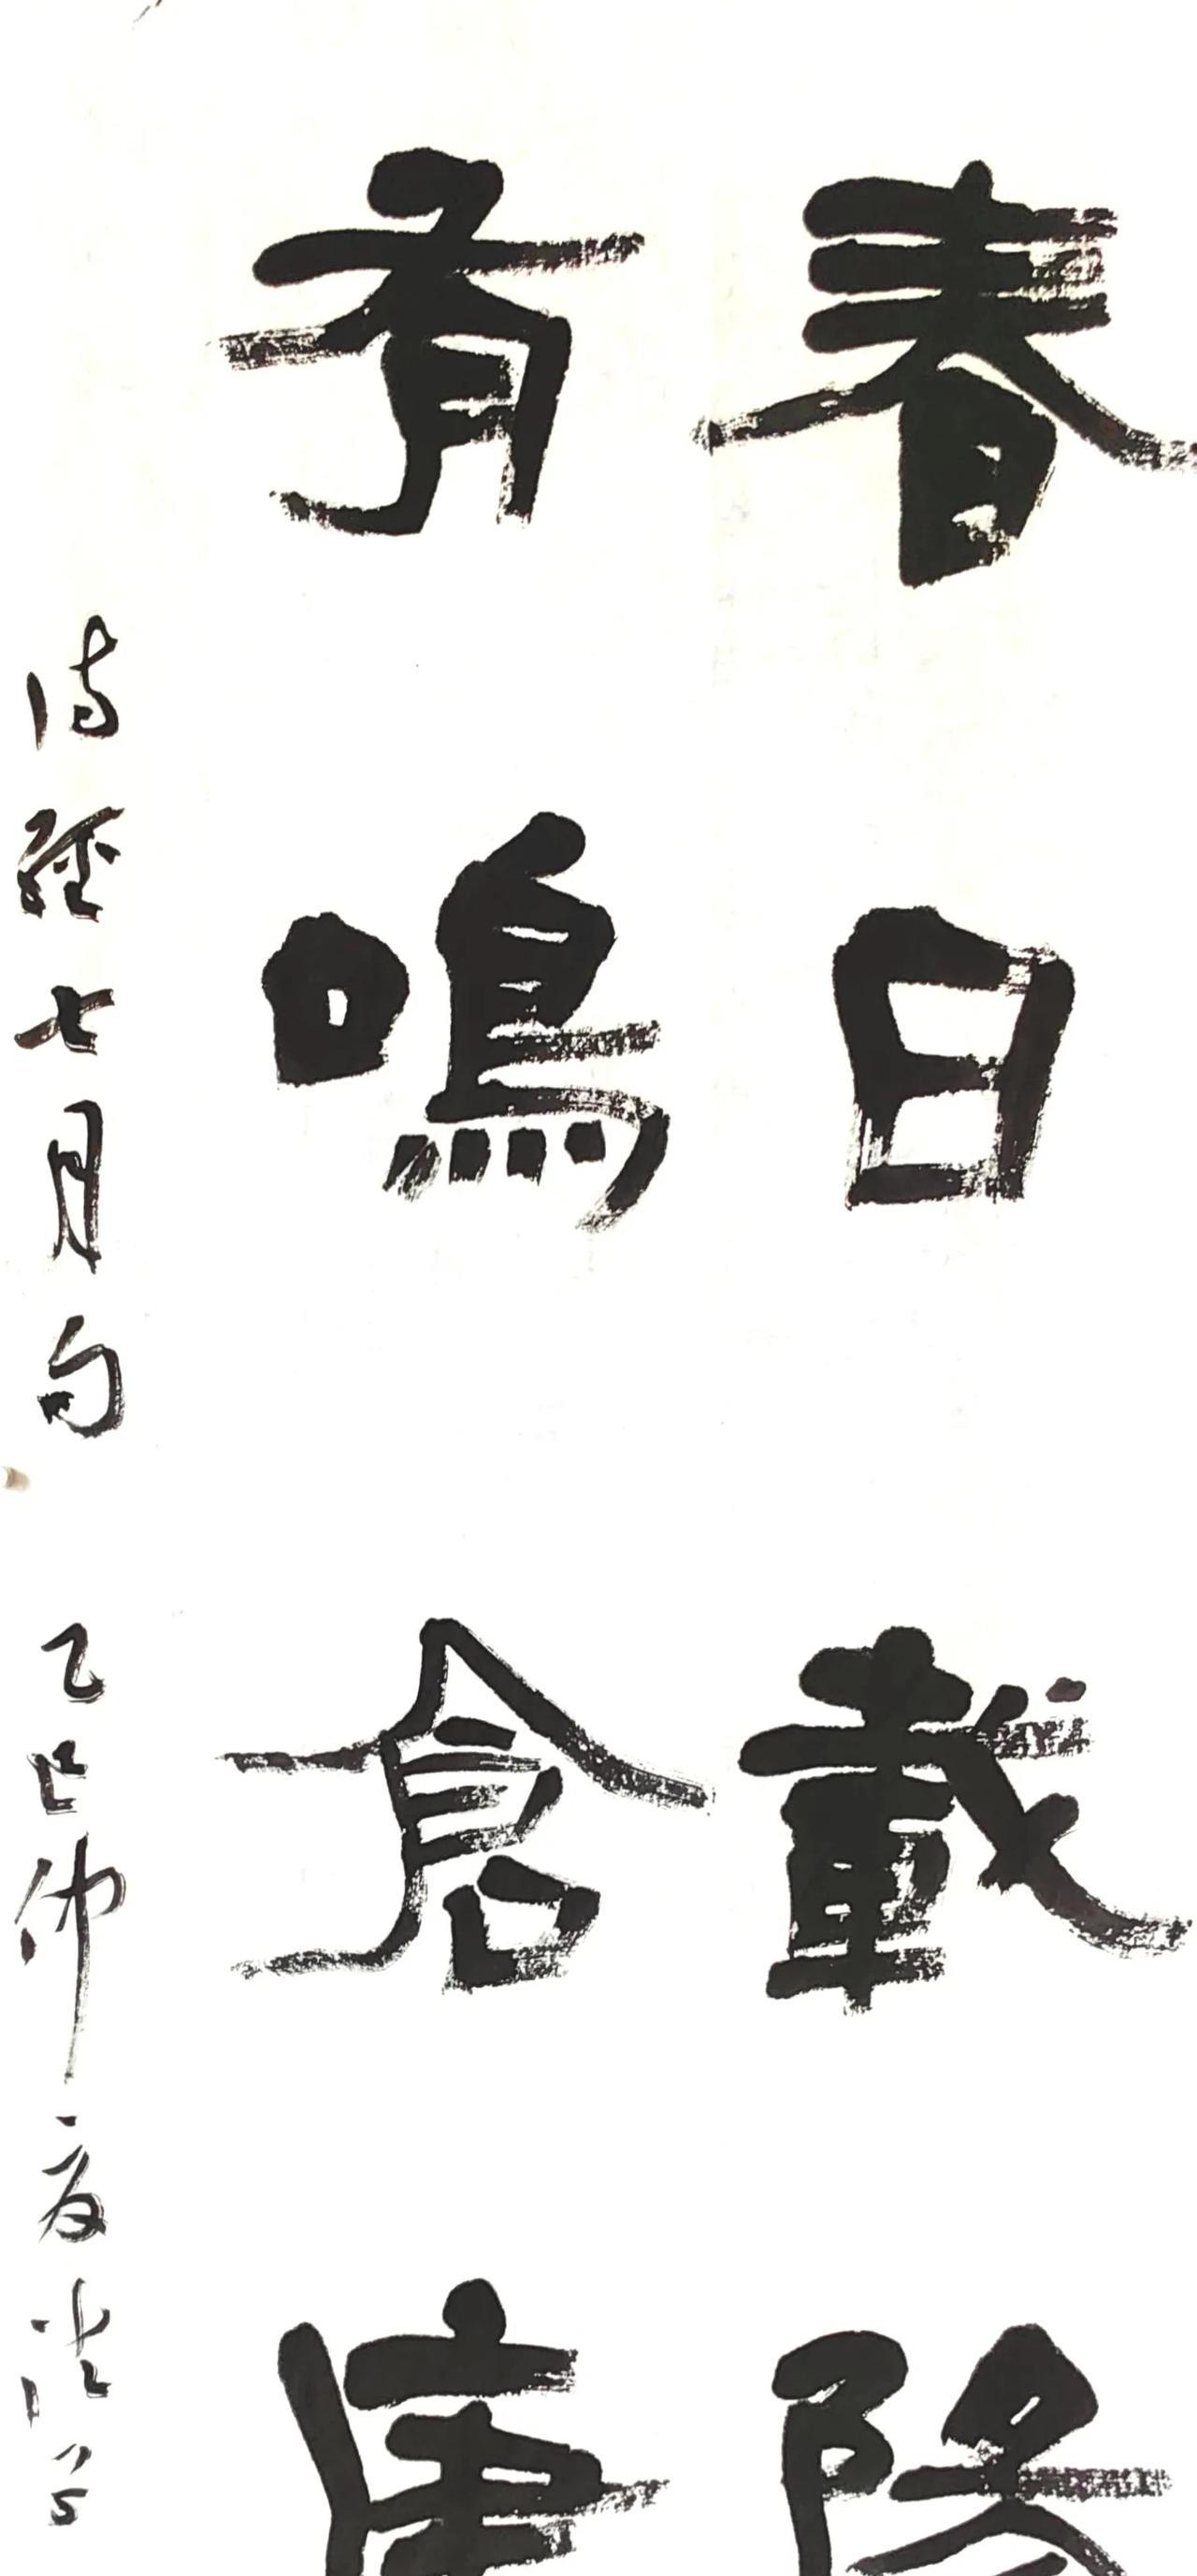 春日載陽
有鳴倉庚
詩經七月句 乙巳仲夏